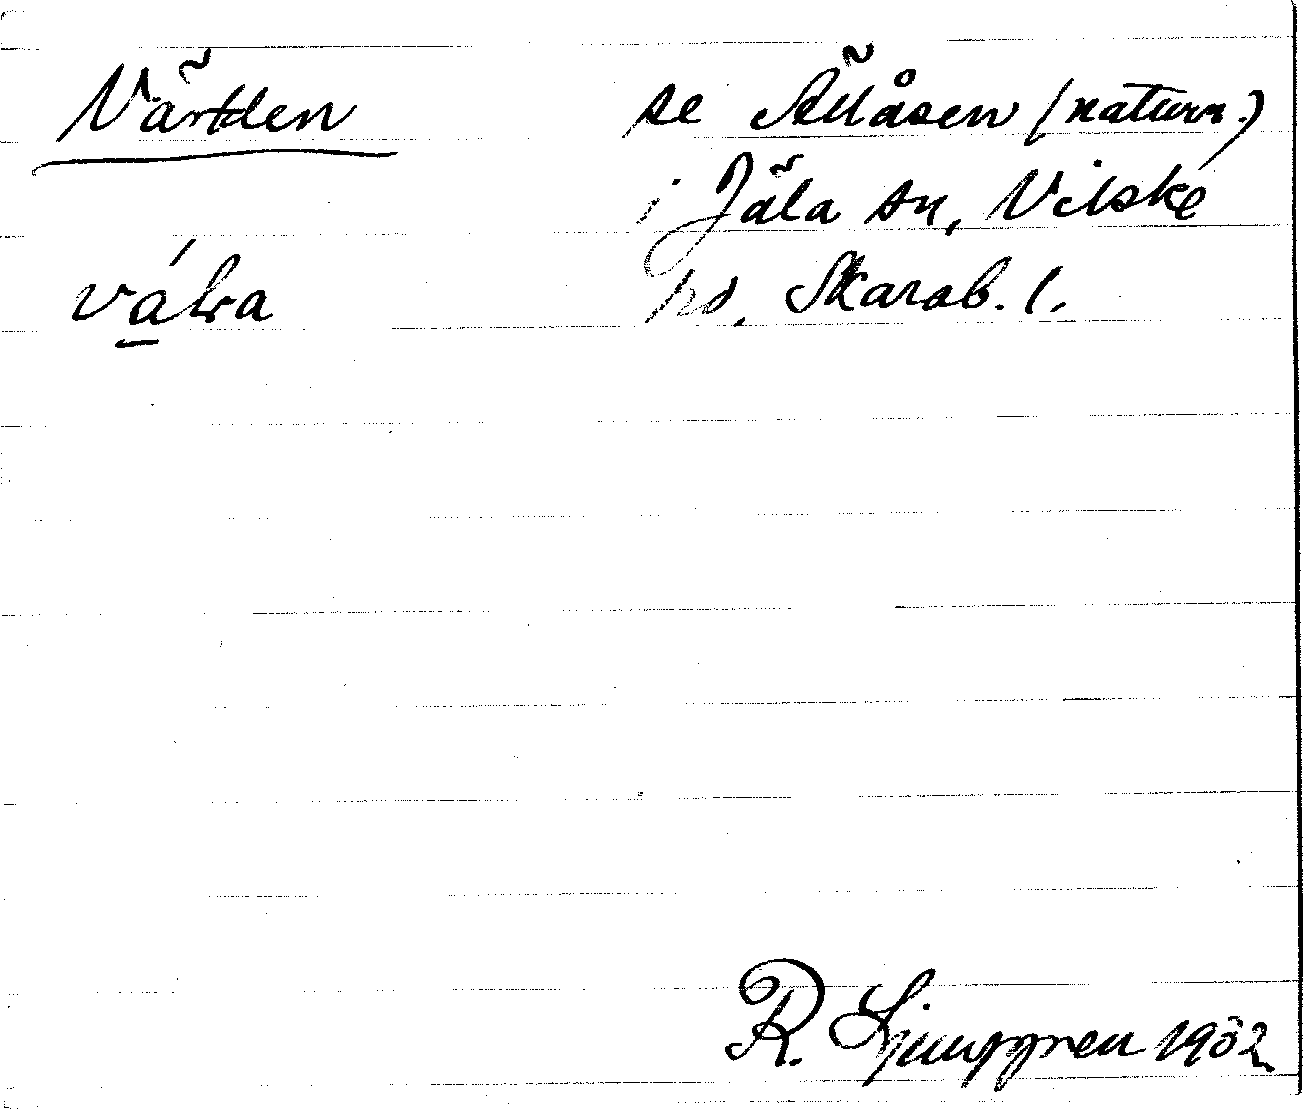 Värtden se Ällåsen (naturn.)
i Jäla sn, Vilske
hd. Skarab. l.
R. Ljunggren 1932